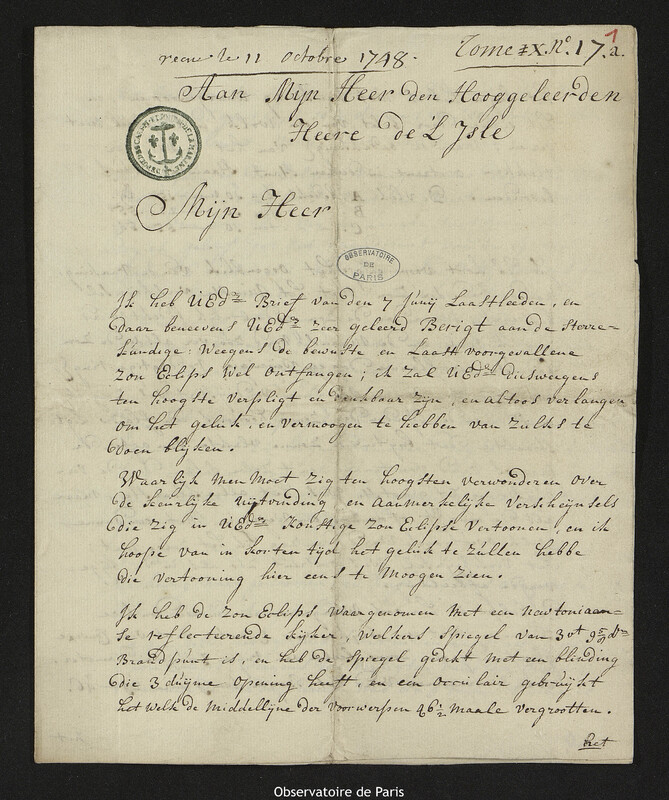 recu le 11 Octobre 1748.
Tome XX. N.º 17. a.
1
Aan Mijn Heer den Hooggeleerden
Heere de L'Jsle
Mijn Heer
OBSERVATOIRE
DE
PARIS
Ik heb UEd.ns Brief van den 7 Junij Laastleeden, en
daar beneevens UEd.ns zeer geleerd Berigt aan de sterre-
kundige: Weegens de bewuste en Laast voorgevallene
Zon Eclips wel ontfangen; ik zal UEd.ns diesweegens
ten hoogste verpligt en dankbaar zijn, en altoos verlangen
om het geluk, en vermoogen te hebben van zulks te
doen blijken.
Waarlijk men moet zig ten hoogsten verwonderen over
de keurlijke uijtvinding en aanmerkelijke verscheijnsels
die zig in UEd.ns konstige Zon Eclipse vertoonen, en ik
hoope van in korten tijd het geluk te zullen hebbe
die vertooning hier eens te moogen zien.
Ik heb de Zon Eclips waargenomen met een newtoniaan-
se reflecteerende kijker, welkers spiegel van 3 vt 9 5/9 dm
Brandpunt is, en heb de spiegel gedekt met een blinding
die 3 duijme opening heeft, en een occulair gebruijkt
het welk de middellijne der voorwerpen 46 1/2 maale vergrootten.
het
Observatoire de Paris